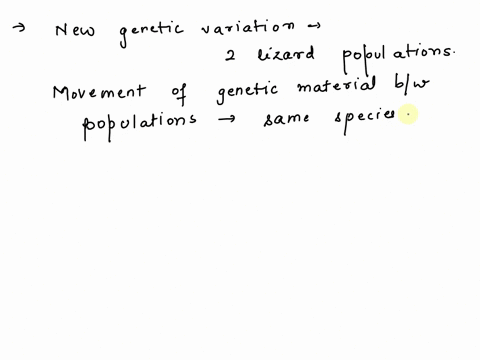 → New genetic variation →
2 lizard populations.
Movement of genetic material b/w
populations → same species.